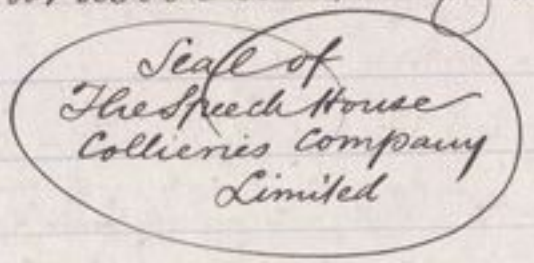 Seal of
The Speech House
Collieries Company
Limited